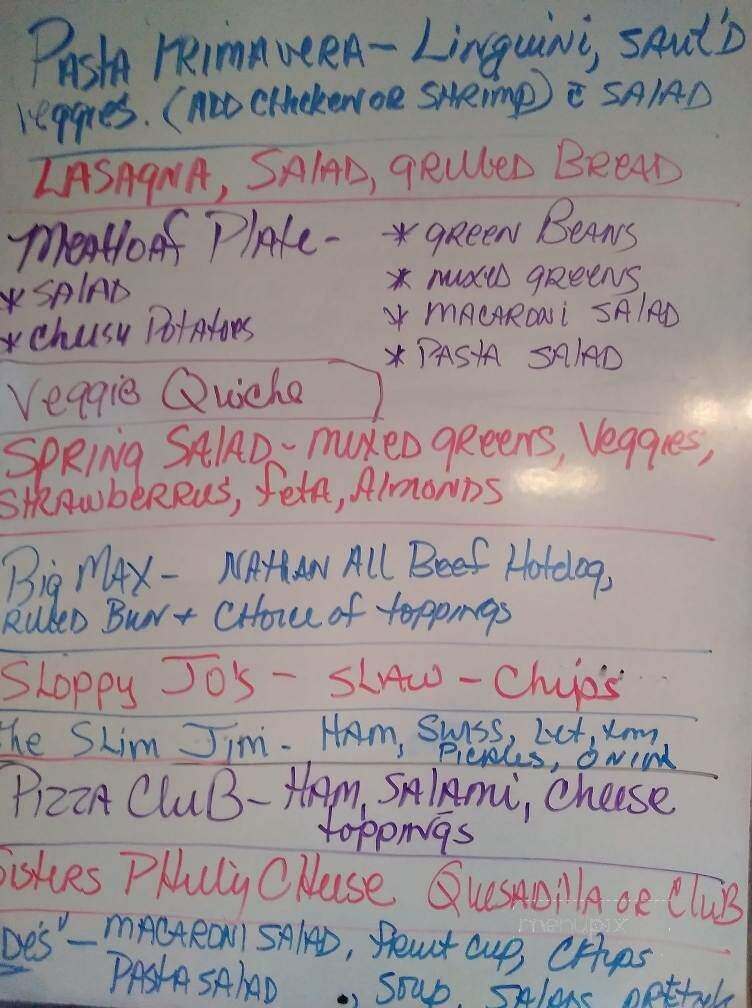 PASTA PRIMAVERA - Linguini, SAUT'D
veggies. (ADD CHICKEN OR SHRIMP) c̄ SALAD
LASAGNA, SALAD, GRILLED BREAD
MEATLOAF PLATE -
* SALAD
* CHEESY POTATOES
* GREEN BEANS
* MIXED GREENS
* MACARONI SALAD
* PASTA SALAD
Veggie Quiche
SPRING SALAD - MIXED GREENS, Veggies,
STRAWBERRIES, FETA, ALMONDS
Big MAX - NATHAN All Beef Hotdog,
BUN + CHOICE of toppings
SLOPPY JO'S - SLAW - CHIPS
The SLIM JIM - HAM, SWISS, Let, tom,
PICKLES, ONION
PIZZA CLUB - HAM, SALAMI, CHEESE
toppings
Sisters PHILLY CHEESE QUESADILLA OR CLUB
menupix
DES" - MACARONI SALAD, fruit cup, CHIPS
PASTA SALAD , SOUP, SALADS